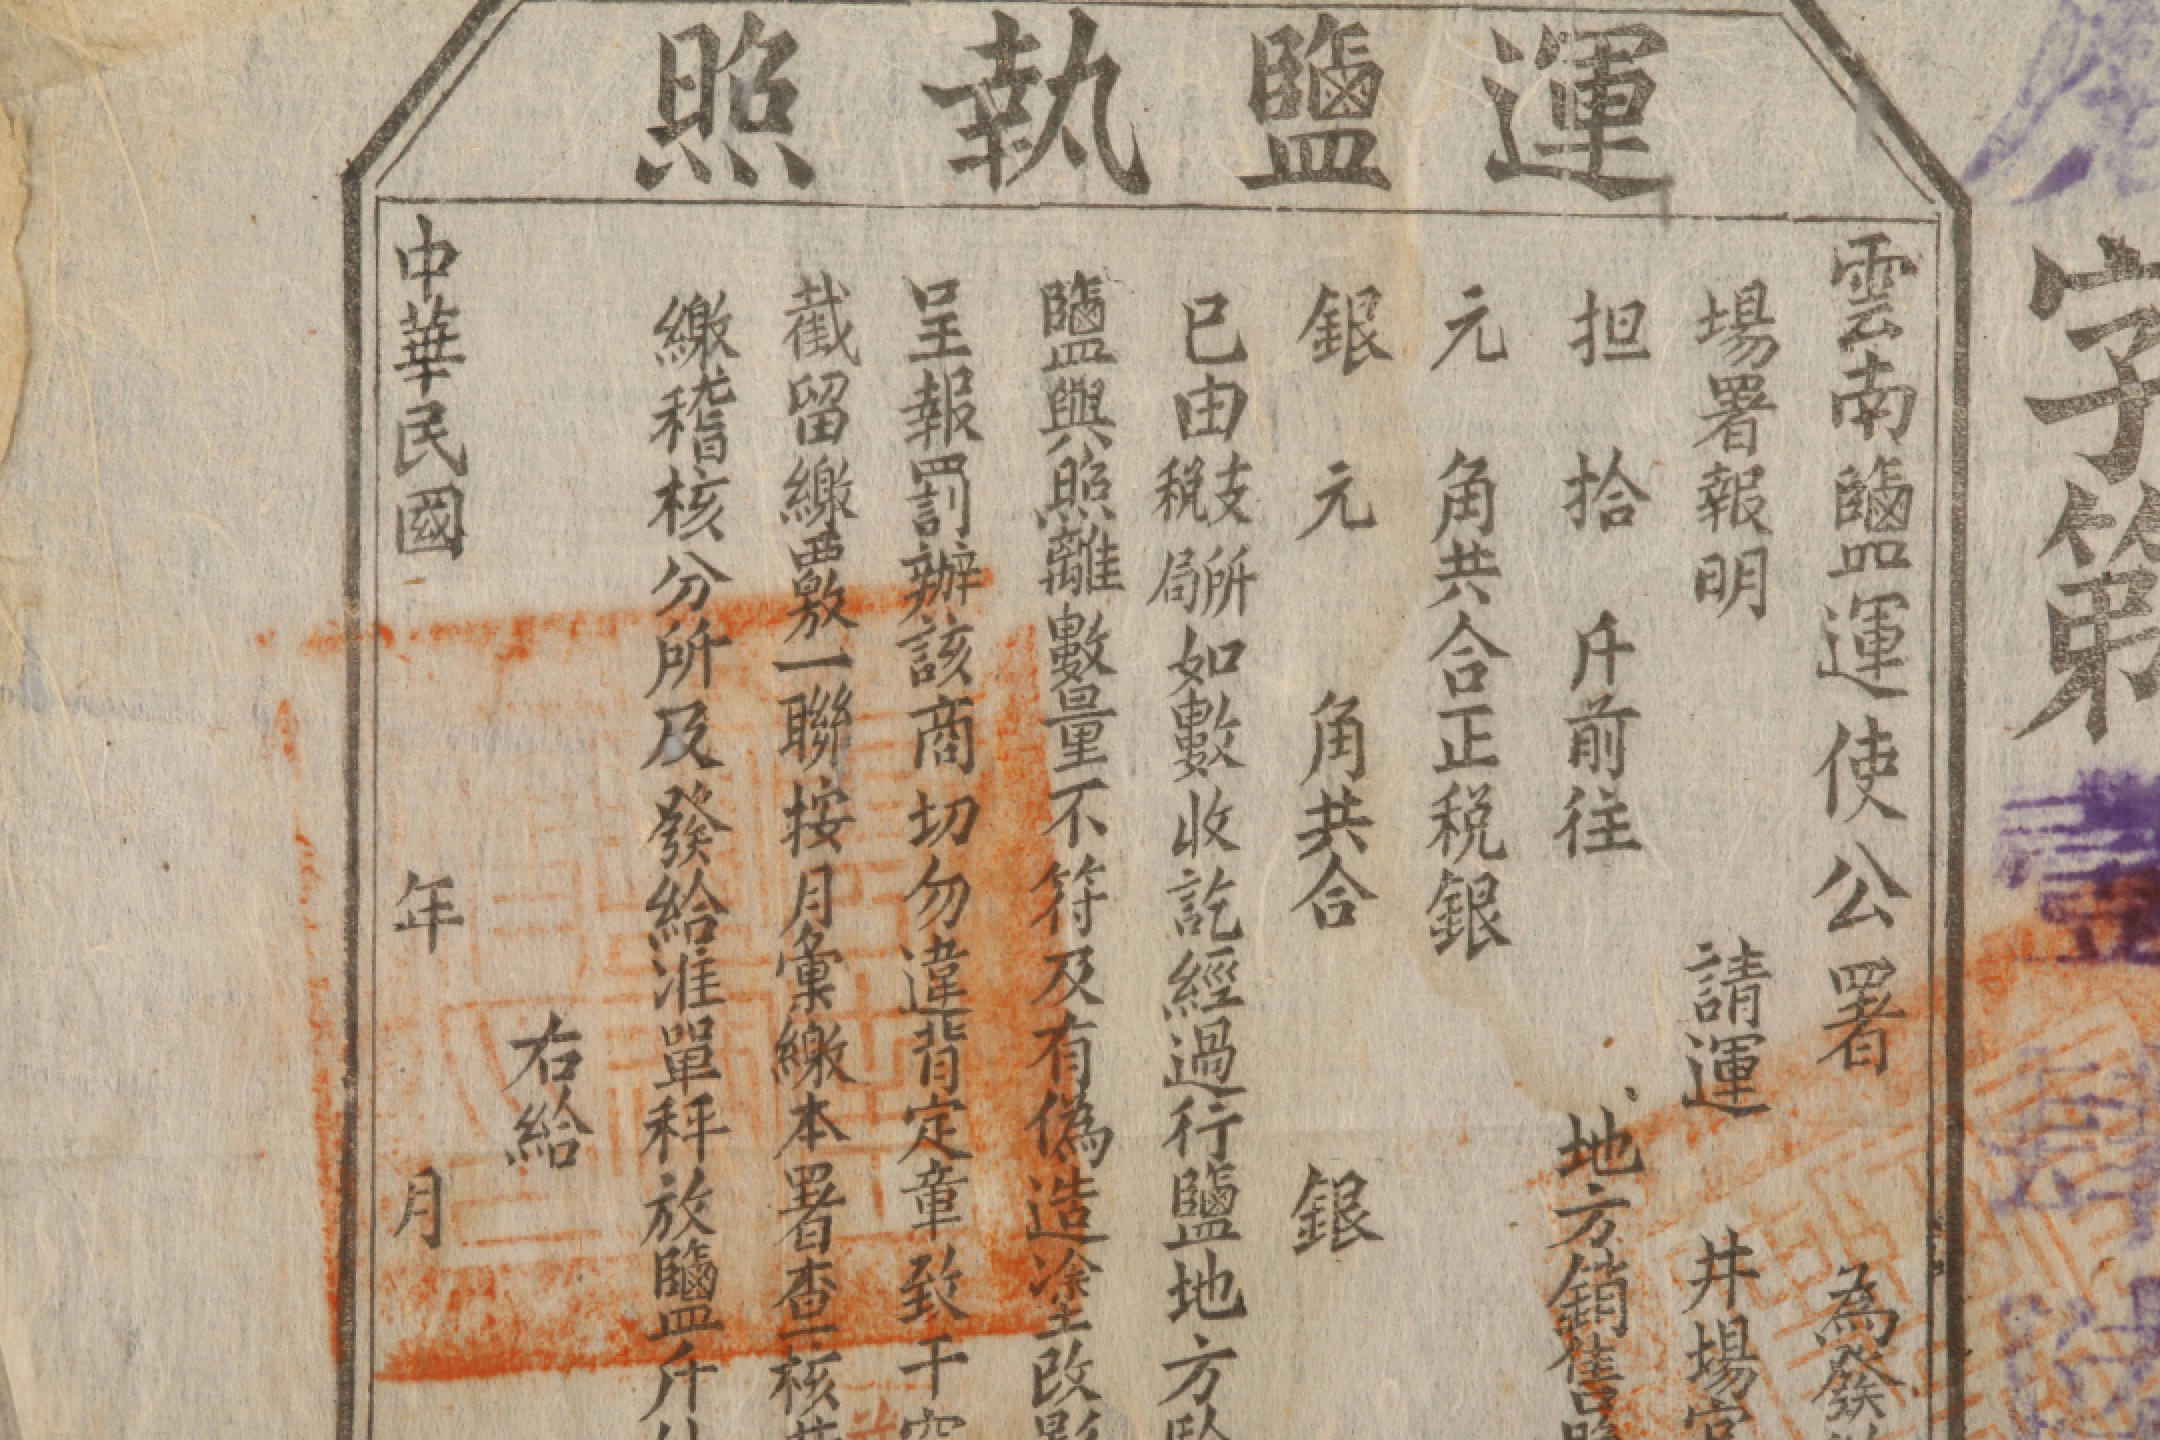 運鹽執照
字第
雲南鹽運使公署 為發
場署報明 請運 井場官
担 拾 斤前往 地方銷售
元 角共合正税銀
銀 元 角共合 銀
已由支所税局如數收訖經過行鹽地方
鹽與照離數量不符及有偽造塗改
呈報罰辦該商切勿違背定章致干
截留繳覈一聯按月彙繳本署查核
繳稽核分所及發給准單秤放鹽斤
右給
中華民國 年 月